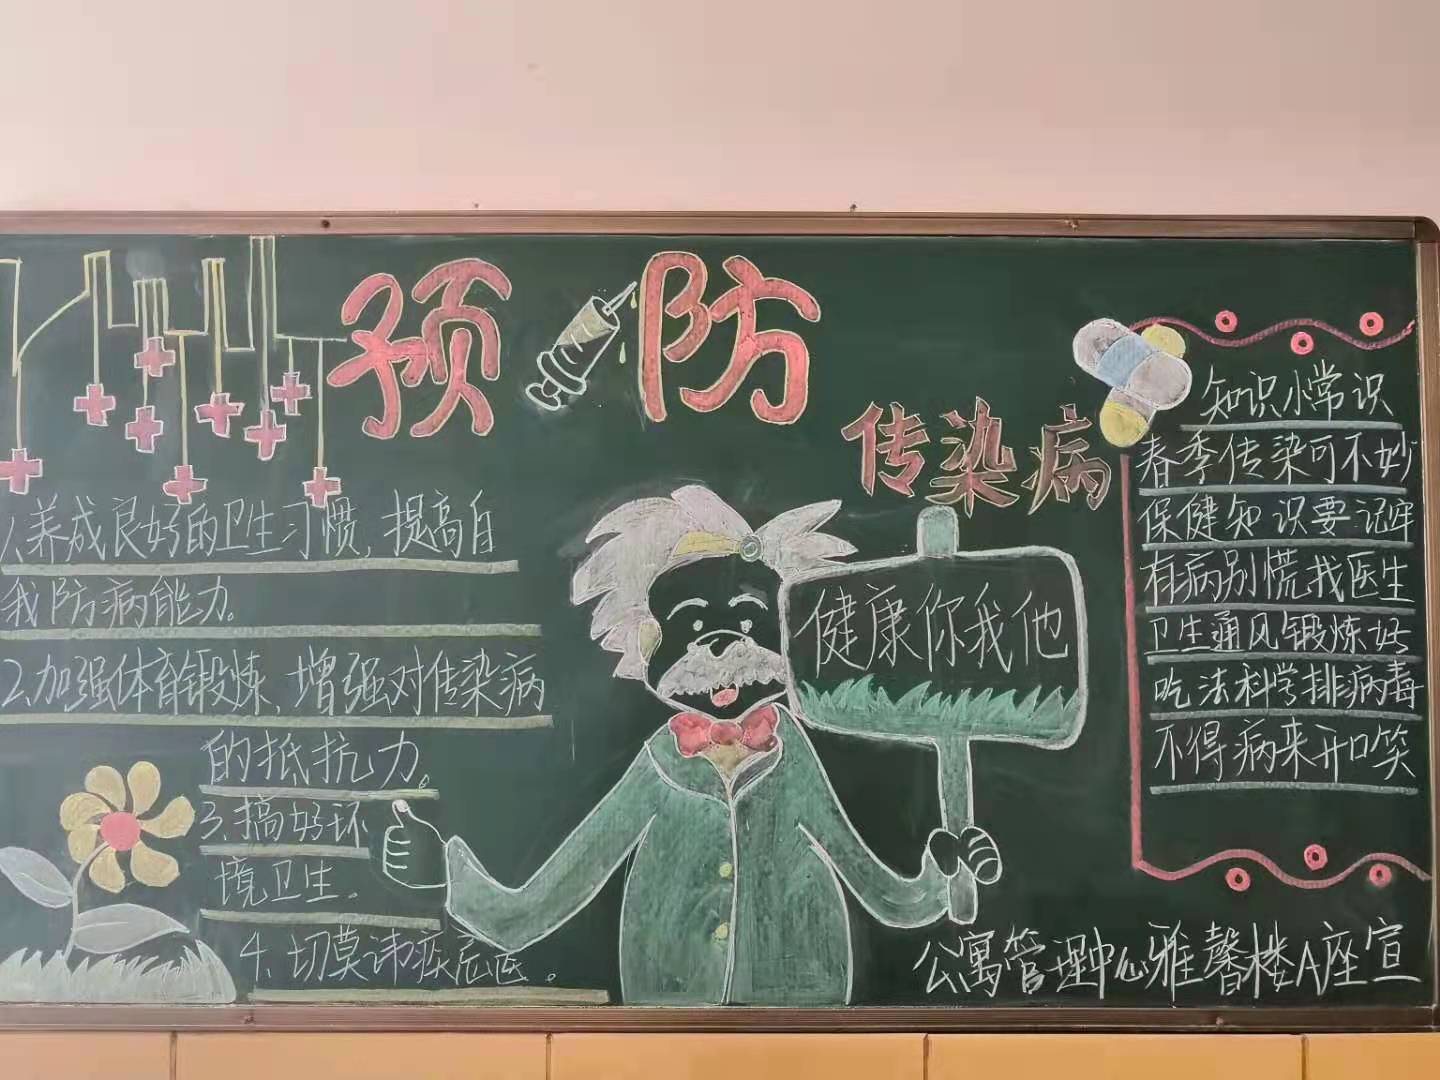 预防
传染病
1、养成良好的卫生习惯，提高自
我防病能力。
2、加强体育锻炼、增强对传染病
的抵抗力。
3、搞好环
境卫生。
4、切莫讳疾忌医。
健康你我他
知识小常识
春季传染可不妙
保健知识要记牢
有病别慌找医生
卫生通风锻炼好
吃法科学排病毒
不得病来开口笑
公寓管理中心雅馨楼A座宣